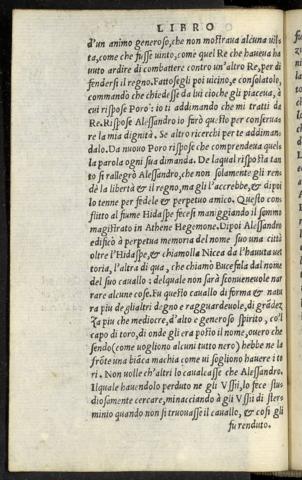 LIBRO
d'un animo generoso, che non mostraua alcuna uil-
ta, come che fusse uinto, come quel Re che haueua ha
uuto ardire di combattere contro un'altro Re, per di
fendersi il regno. Fattosegli poi uicino, e consolatolo,
commando che chiedesse da lui cioche gli piaceua, à
cui rispose Poro: io ti addimando che mi tratti da
Re. Rispose Alessandro io farò questo per conserua
re la mia dignità. Se altro ricerchi per te addiman
dalo. Da nuouo Poro rispose che comprendeua quel
la parola ogni sua dimanda. De laqual risposta tan
to si rallegrò Alessandro, che non solamente gli ren
dè la libertà & il regno, ma gli l'accrebbe, & dipoi
lo tenne per fedele & perpetuo amico. Questo con
flitto al fiume Hidaspe fecesi maniggiando il sommo
magistrato in Athene Hegemone. Dipoi Alessandro
edificò à perpetua memoria del nome suo una città
oltre l'Hidaspe, & chiamolla Nicea da l'hauuta uet
toria, l'altra di qua, che chiamò Bucefala dal nome
del suo cauallo: delquale non sarà sconueneuole nar
rare alcune cose. Fu questo cauallo di forma & natu
ra piu degli altri digno e ragguardeuole, di grãdez
za piu che mediocre, d'alto e generoso spirito, co'l
capo di toro, di onde gli era posto il nome, ouero che
sendo (come uogliono alcuni tutto nero) hebbe ne la
frõte una biãca machia come ui sogliono hauere i to
ri. Non uolle ch'altri lo caualcasse che Alessandro.
Ilquale hauendolo perduto ne gli Vssii, lo fece stu-
diosamente cercare, minacciando à gli Vssii di ster-
minio quando non si trouasse il cauallo, & cosi gli
fu renduto.